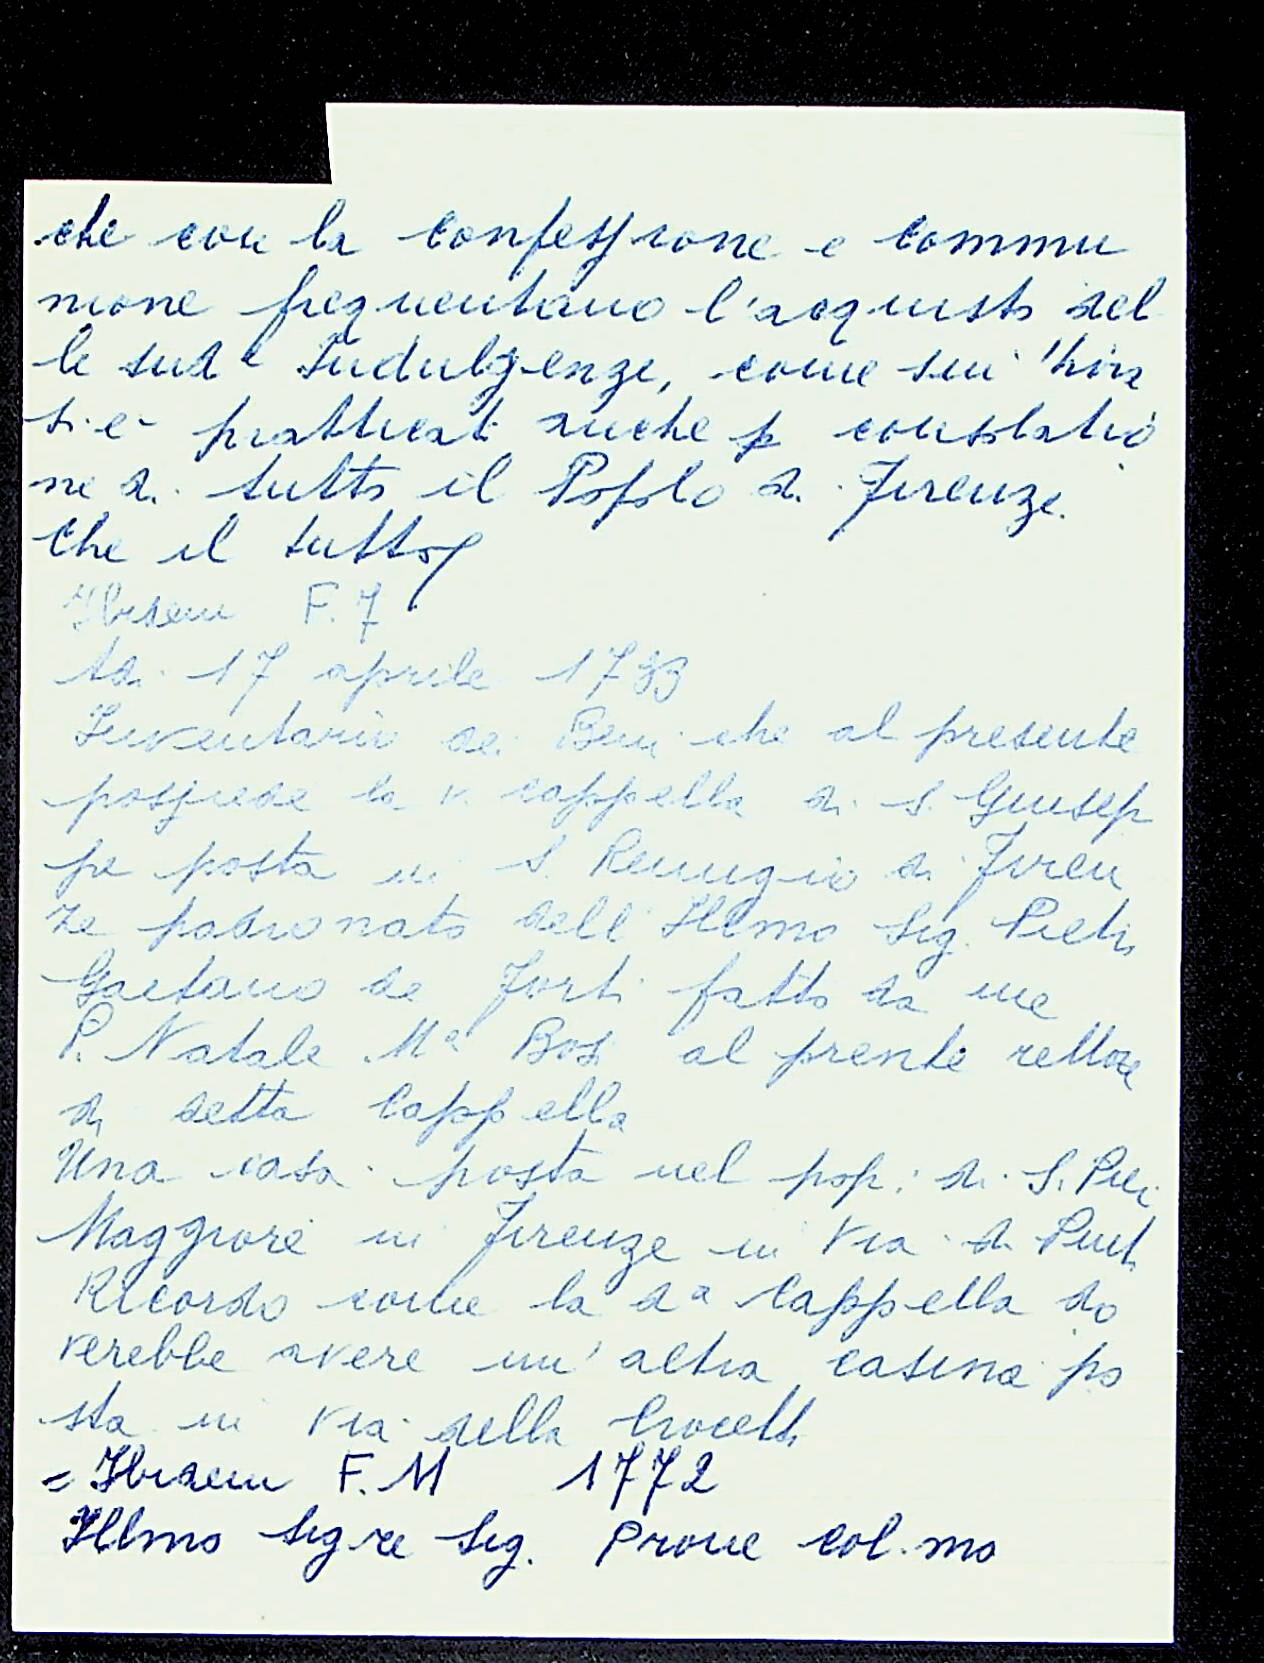 che con la confessione e commu
nione frequentano l'acquisto del
le sud.e Indulgenze, come sin'hora
si è pratticato anche p consolatio
ne di tutto il Popolo di Firenze.
Che il tutto
Ibidem F. 7
Adi 17 aprile 1733
Inventario dei Beni che al presente
possiede la v. cappella di S. Giusep
pe posta in S. Remugio di Firen
ze padronato dell'Illmo Sig. Pietro
Gaetano de Forti fatto da me
P. Natale M.a Bosi al prente rettore
di detta Cappella
Una casa posta nel pop: di S. Pier
Maggiore in Firenze in Via di Pinti
Ricordo come la d.a Cappella do
verebbe avere un'altra casina po
sta in via della Crocetta
= Ibidem F. M 1772
Illmo Sigre Sig. Prone Col.mo